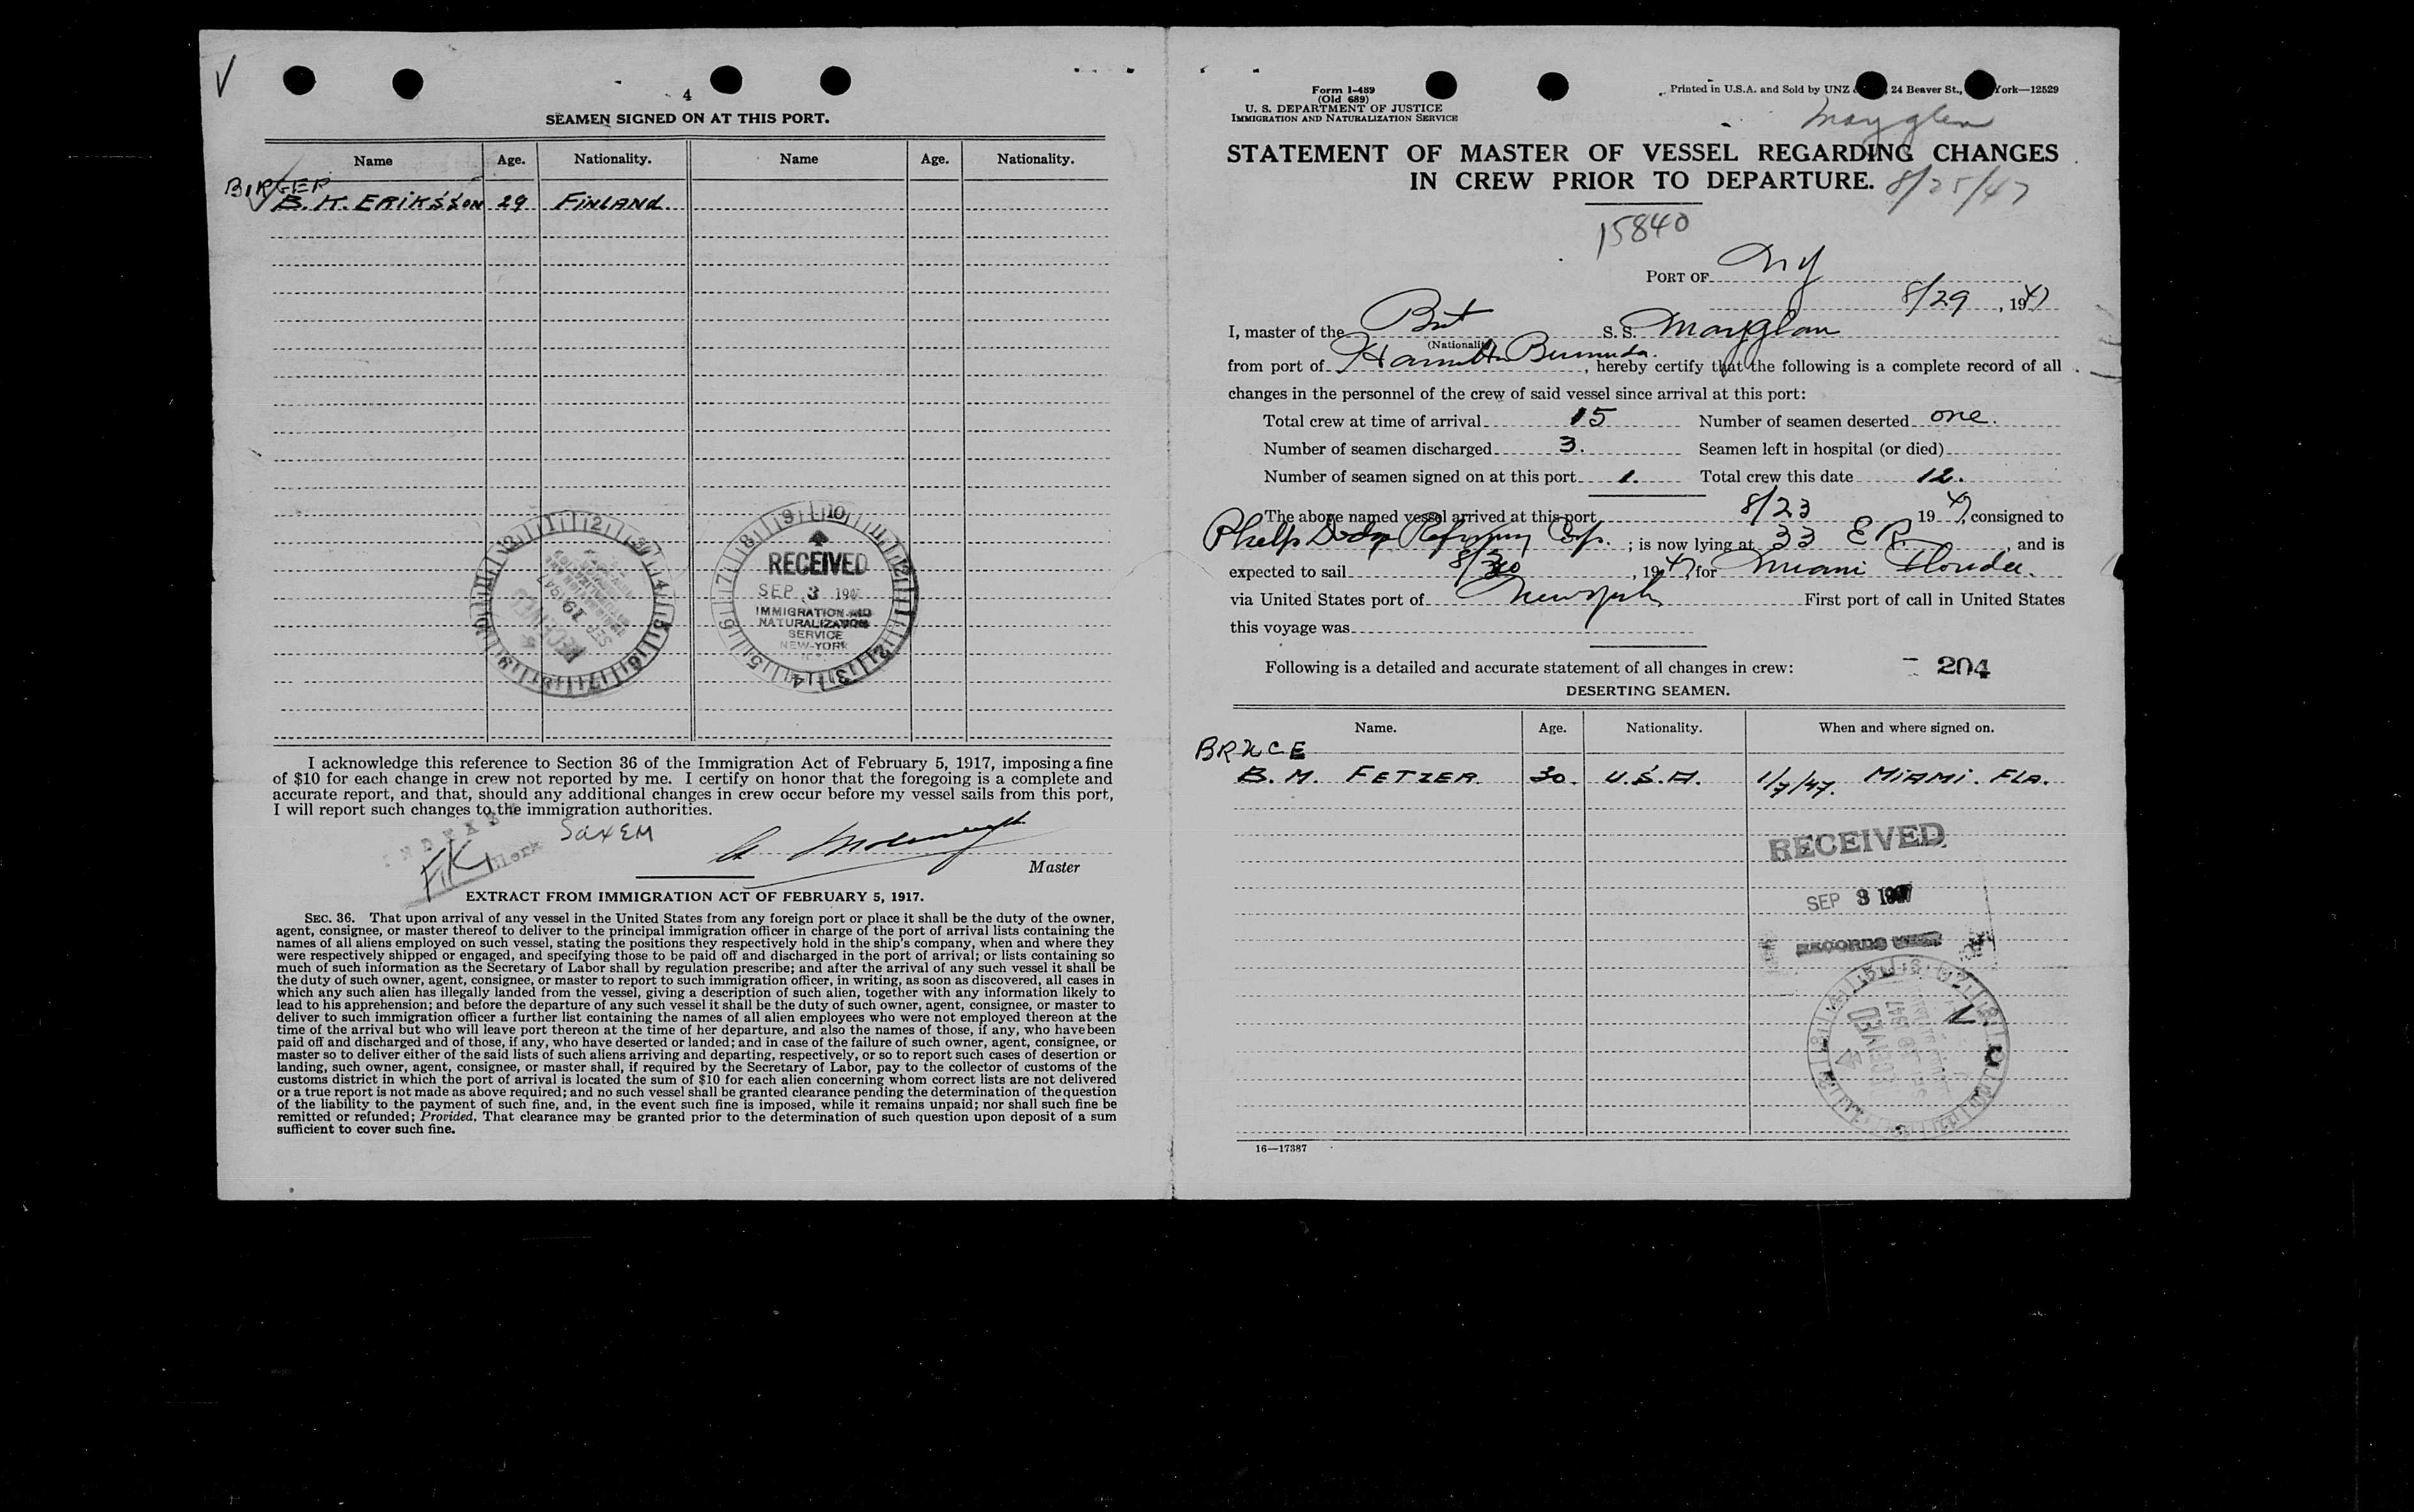 4
SEAMEN SIGNED ON AT THIS PORT.
Name Age. Nationality. Name Age. Nationality.
BIRGER
B. K. ERIKSSON 29 FINLAND.
RECEIVED
SEP 19 1947
RECEIVED
SEP 3 194
IMMIGRATION AND
NATURALIZATION
SERVICE
NEW-YORK
I acknowledge this reference to Section 36 of the Immigration Act of February 5, 1917, imposing a fine
of $10 for each change in crew not reported by me. I certify on honor that the foregoing is a complete and
accurate report, and that, should any additional changes in crew occur before my vessel sails from this port,
I will report such changes to the immigration authorities.
INDEXED
FK Clerk
SaxEM
Master
EXTRACT FROM IMMIGRATION ACT OF FEBRUARY 5, 1917.
SEC. 36. That upon arrival of any vessel in the United States from any foreign port or place it shall be the duty of the owner,
agent, consignee, or master thereof to deliver to the principal immigration officer in charge of the port of arrival lists containing the
names of all aliens employed on such vessel, stating the positions they respectively hold in the ship's company, when and where they
were respectively shipped or engaged, and specifying those to be paid off and discharged in the port of arrival; or lists containing so
much of such information as the Secretary of Labor shall by regulation prescribe; and after the arrival of any such vessel it shall be
the duty of such owner, agent, consignee, or master to report to such immigration officer, in writing, as soon as discovered, all cases in
which any such alien has illegally landed from the vessel, giving a description of such alien, together with any information likely to
lead to his apprehension; and before the departure of any such vessel it shall be the duty of such owner, agent, consignee, or master to
deliver to such immigration officer a further list containing the names of all alien employees who were not employed thereon at the
time of the arrival but who will leave port thereon at the time of her departure, and also the names of those, if any, who have been
paid off and discharged and of those, if any, who have deserted or landed; and in case of the failure of such owner, agent, consignee, or
master so to deliver either of the said lists of such aliens arriving and departing, respectively, or so to report such cases of desertion or
landing, such owner, agent, consignee, or master shall, if required by the Secretary of Labor, pay to the collector of customs of the
customs district in which the port of arrival is located the sum of $10 for each alien concerning whom correct lists are not delivered
or a true report is not made as above required; and no such vessel shall be granted clearance pending the determination of the question
of the liability to the payment of such fine, and, in the event such fine is imposed, while it remains unpaid; nor shall such fine be
remitted or refunded; Provided, That clearance may be granted prior to the determination of such question upon deposit of a sum
sufficient to cover such fine.
Form I-489
(Old 689)
U. S. DEPARTMENT OF JUSTICE
IMMIGRATION AND NATURALIZATION SERVICE
Printed in U.S.A. and Sold by UNZ 24 Beaver St., York—12529
Mayglen
STATEMENT OF MASTER OF VESSEL REGARDING CHANGES
IN CREW PRIOR TO DEPARTURE. 8/25/47
15840
PORT OF NY
8/29, 1947
I, master of the Brit S. S. Mayglen
(Nationality)
from port of Hamilton Bermuda., hereby certify that the following is a complete record of all
changes in the personnel of the crew of said vessel since arrival at this port:
Total crew at time of arrival 15 Number of seamen deserted one.
Number of seamen discharged 3. Seamen left in hospital (or died)
Number of seamen signed on at this port 1. Total crew this date 12.
The above named vessel arrived at this port 8/23 1947, consigned to
Phelps Dodge Refining Corp.; is now lying at 33 E R., and is
expected to sail 8/30, 1947, for Miami Florida.
via United States port of New York First port of call in United States
this voyage was
Following is a detailed and accurate statement of all changes in crew: - 204
DESERTING SEAMEN.
Name. Age. Nationality. When and where signed on.
BRUCE
B. M. FETZER. 30. U.S.A. 1/7/47. MIAMI. FLA.
RECEIVED
SEP 3 1947
RECORDS
16—17387